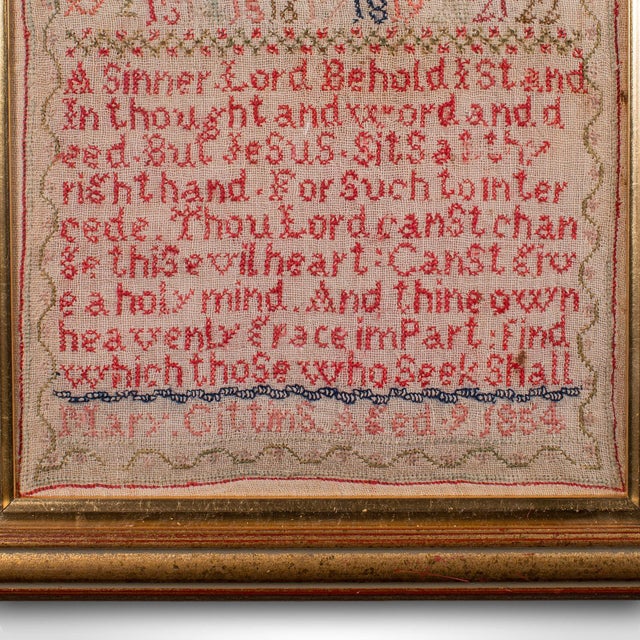 15 18 19 21 22
A Sinner Lord Behold I Stand
In thought and word and d
eed. But JeSuS. SitS at thy
right hand. For Such to inter
cede. Thou Lord canSt chan
ge this evil heart: CanSt giv
e a holy mind. And thine own
heavenly grace imPart: find
which thoSe who Seek Shall
Mary. Gittins Aged. 9 1884